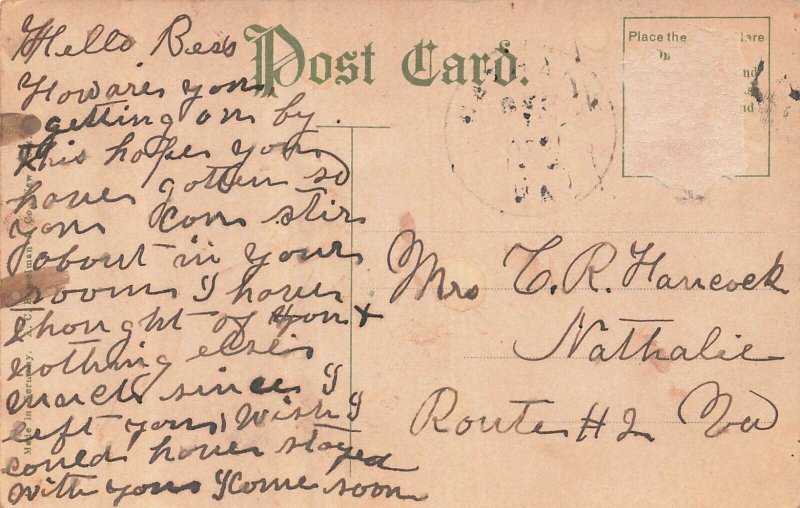 Hello Bess
How are you
getting on by
this hopes you
have gotten so
you can stir
about in your
room I have
thought of you +
nothing else
much since I
left you, Wish I
could have stayed
with you Come soon
Post Card.
Place the
Mrs C. R. Hancock
Nathalie
Route #2 Va
Made in Germany.